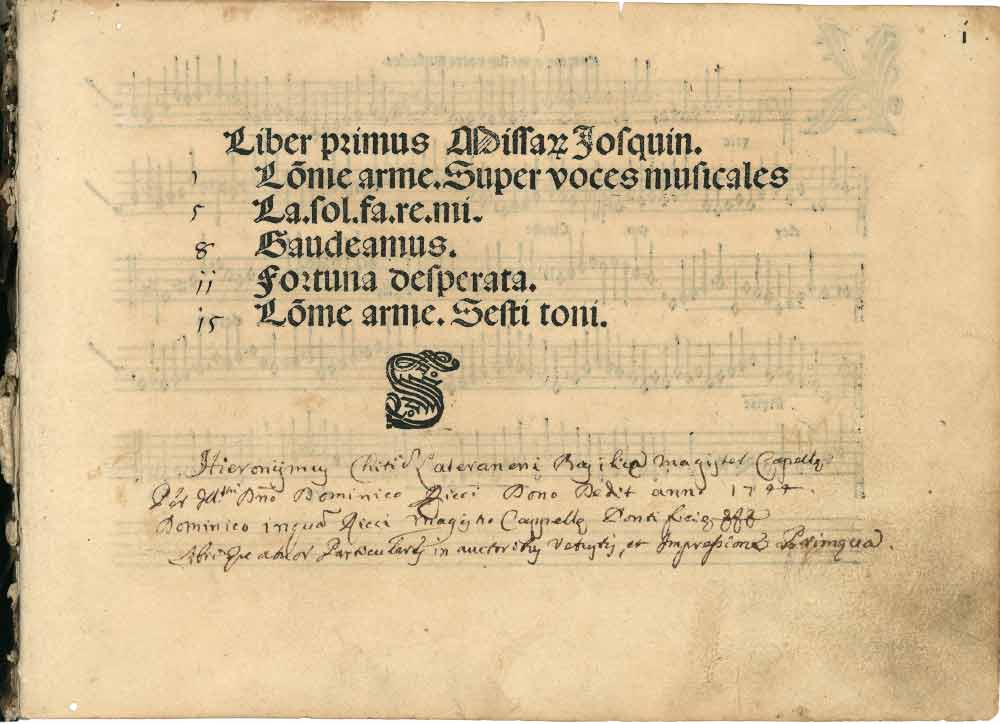 i
Liber primus Missaꝝ Josquin.
1 Lõme arme. Super voces musicales
5 La.sol.fa.re.mi.
8 Gaudeamus.
11 Fortuna desperata.
15 Lõme arme. Sesti toni.
S
Hieronymus Chiti Lateranen Basilicę Magister Capellę
Dño Dominico Ricci Dono Dedit anno
Dominico Ricci Magistro Cappellę Pontificię
in auctoribus Vetustis, et Impressione